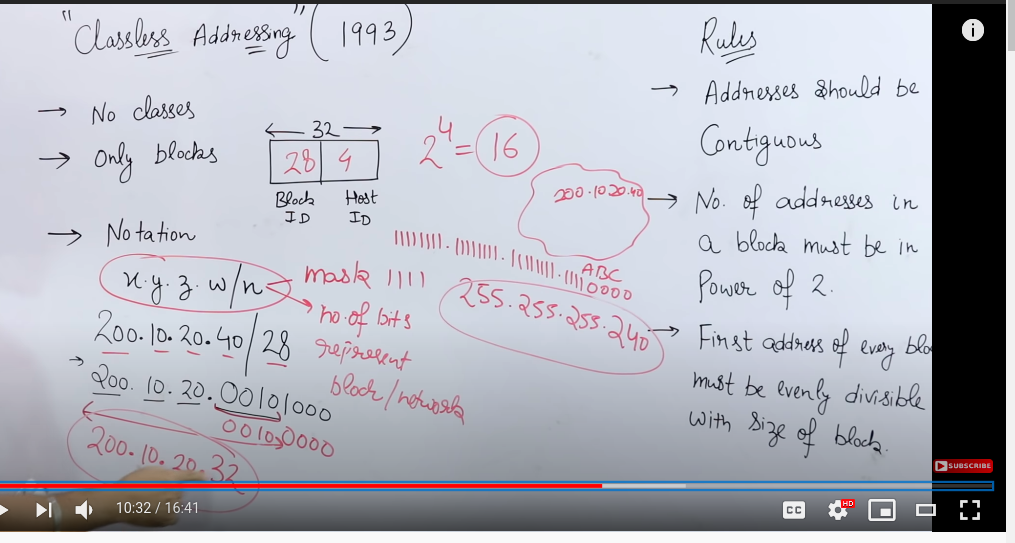 "Classless Addressing" (1993)
→ No classes
→ Only blocks
32
28 4
Block ID
Host ID
2^4 = 16
200.10.20.40
→ Notation
x.y.z.w/n
mask 1111
no. of bits
represent
block/network
11111111.11111111.11111111.11110000
ABC
255.255.255.240
200.10.20.40/28
→ 200.10.20.00101000
00100000
200.10.20.32
Rules
→ Addresses should be
Contiguous
→ No. of addresses in
a block must be in
Power of 2.
→ First address of every bloc
must be evenly divisible
with size of block.
SUBSCRIBE
10:32 / 16:41
CC
HD